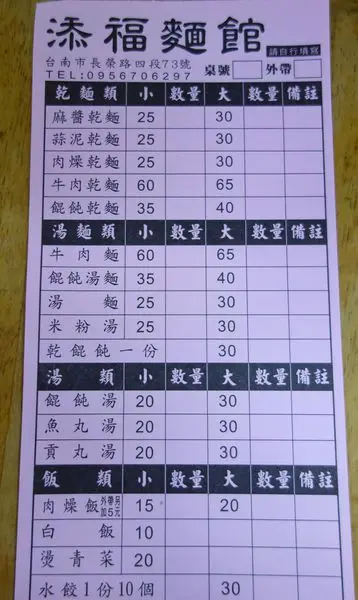 添福麵館
請自行填寫
台南市長榮路四段73號
TEL:0956706297
桌號 外帶
乾麵類 小 數量 大 數量 備註
麻醬乾麵 25 30
蒜泥乾麵 25 30
肉燥乾麵 25 30
牛肉乾麵 60 65
餛飩乾麵 35 40
湯麵類 小 數量 大 數量 備註
牛肉麵 60 65
餛飩湯麵 35 40
湯麵 25 30
米粉湯 25 30
乾餛飩一份 30
湯類 小 數量 大 數量 備註
餛飩湯 20 30
魚丸湯 20 30
貢丸湯 20 30
飯類 小 數量 大 數量 備註
肉燥飯 外帶另加5元 15 20
白飯 10
燙青菜 20
水餃1份10個 30